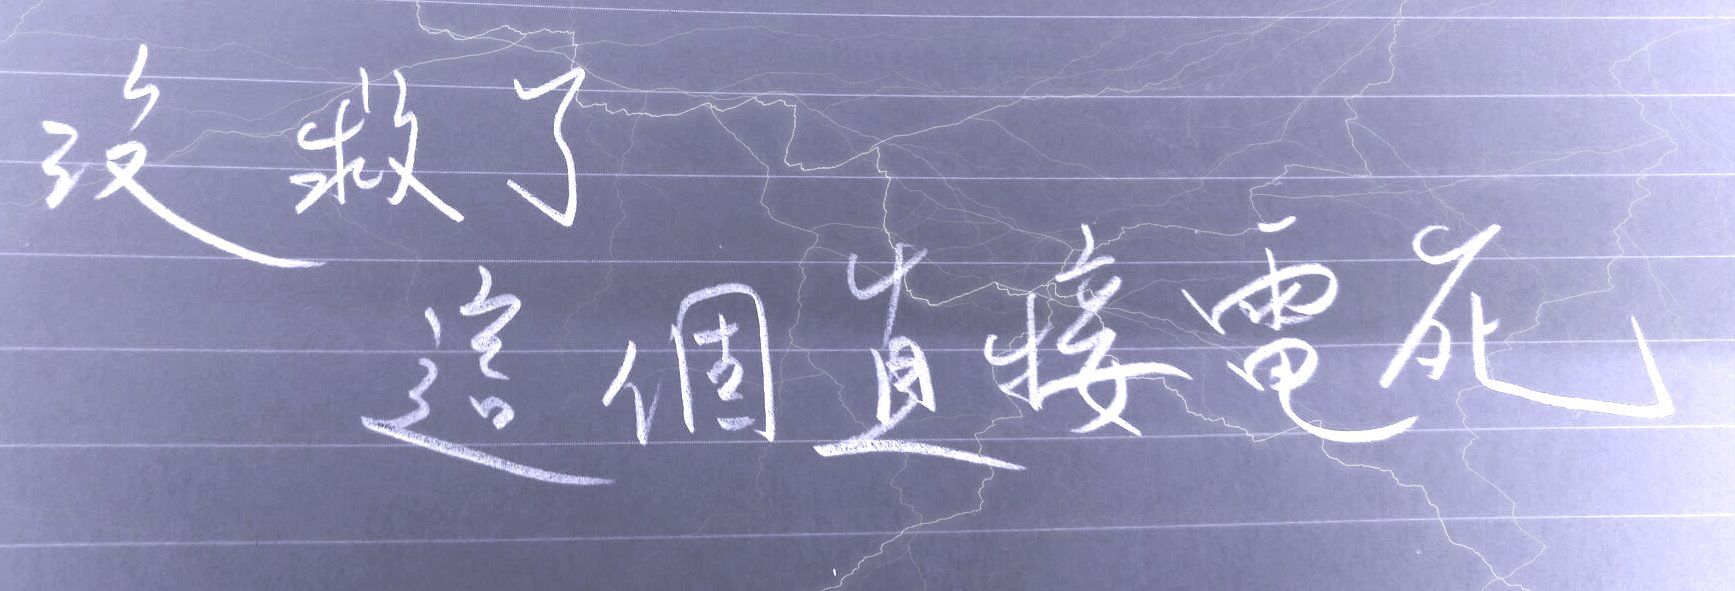 没救了
這個直接電死